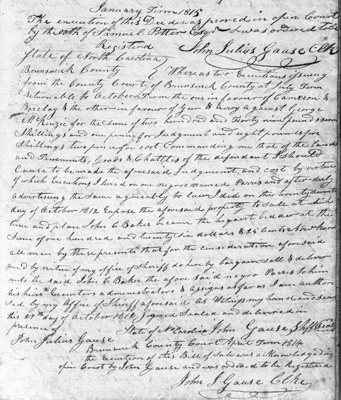 January Term 1815
The execution of this Deed was proved in open Court
by the oath of Samuel Potter Esqr & was ordered to be
Registered
John Julius Gause Clk
State of North Carolina
Brunswick County Whereas two Executions issuing
from the County Court of Brunswick County at July Term
returnable to October Term the one in favour of
Barclay & the other in favour of Geo B against George
McKenzie for the Sum of two hundred and Forty nine pounds seven
Shillings and one penny for Judgment and eight pounds five
Shillings two pence for cost Commanding me that of the Lands
and Tenements, Goods & Chattles of the defendant I should
Cause to be made the aforesaid Judgment and cost by virtue
of which Executions I levied on one negro named Parris and after duly
advertising the same agreeably to Law, I did on this
day of October 1812 Expose the aforesaid property to Sale at which
time and place John C Baker became the highest bidder at the
Sum of one hundred and twenty six dollars & 25 cents Now know
all men by these presents that for the consideration aforesaid
and by virtue of my office of Sheriff do hereby bargain sell & deliver
unto the said John C Baker the aforesaid negro Paris to him
his heirs Executors administrators & assigns as far as I am authori
sed by my Office of Sheriff aforesaid As Witness my hand and season
this 27th day of October 1812 Signed Sealed and delivered in
presence of
John Gause Shff
John Julius Gause
State of No Carolina
Brunswick County Court April Term 1814
the execution of this Bill of Sale was acknowledged in
open Court by John Gause and was ordered to be Registered
John J Gause Clk